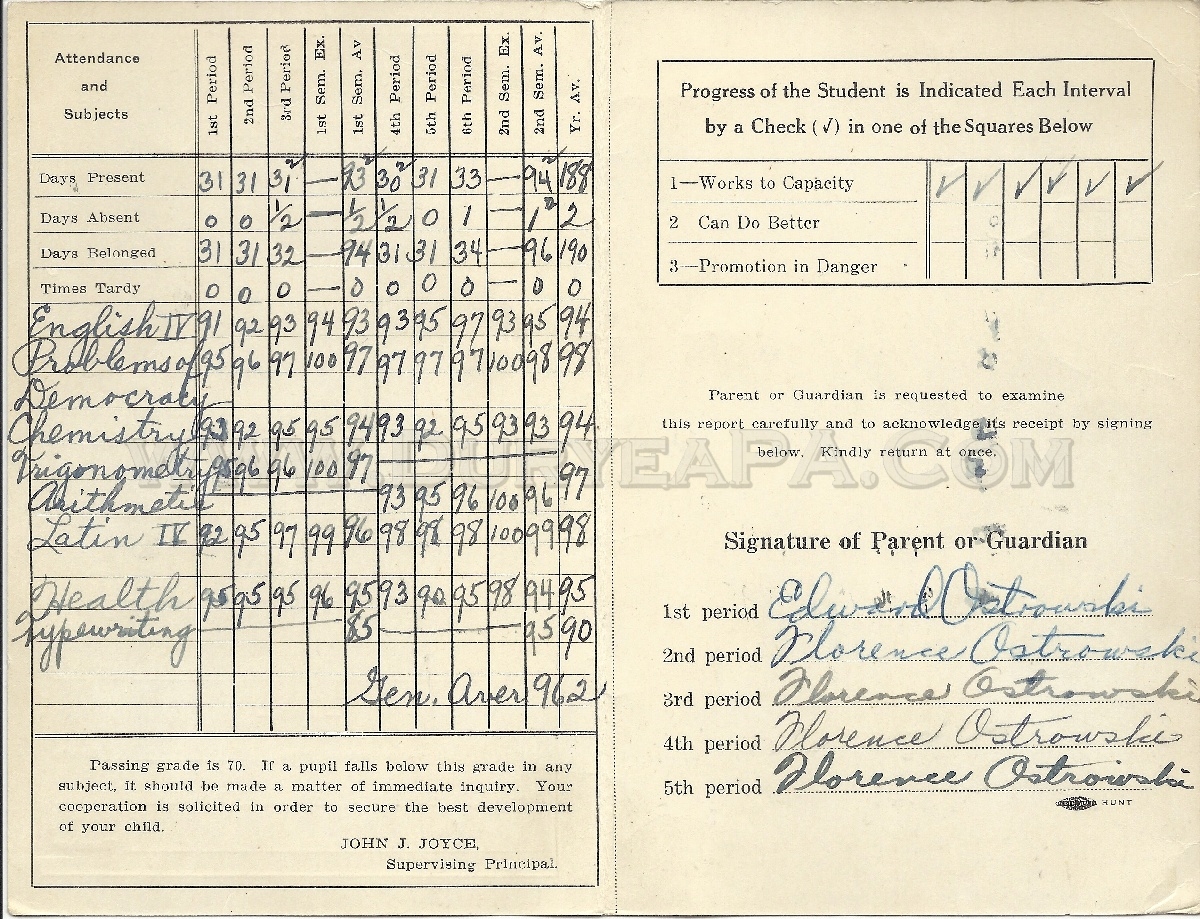 Attendance
and
Subjects
1st Period
2nd Period
3rd Period
1st Sem. Ex.
1st Sem. Av
4th Period
5th Period
6th Period
2nd Sem. Ex.
2nd Sem. Av.
Yr. Av.
Days Present 31 31 31 2 — 93 2 30 2 31 33 — 94 2 188
Days Absent 0 0 1/2 — 1/2 1/2 0 1 — 1 2 2
Days Belonged 31 31 32 — 94 31 31 34 — 96 190
Times Tardy 0 0 0 — 0 0 0 0 — 0 0
English IV 91 92 93 94 93 93 95 97 93 95 94
Problems of 95 96 97 100 97 97 97 97 100 98 98
Democracy
Chemistry 93 92 95 95 94 93 92 95 93 93 94
Trigonometry 95 96 96 100 97
97
Arithmetic 93 95 96 100 96
Latin IV 92 95 97 99 96 98 98 98 100 99 98
Health 95 95 95 96 95 93 90 95 98 94 95
Typewriting 85 95 90
Gen. Aver 96 2
Passing grade is 70. If a pupil falls below this grade in any
subject, it should be made a matter of immediate inquiry. Your
cooperation is solicited in order to secure the best development
of your child.
JOHN J. JOYCE,
Supervising Principal.
Progress of the Student is Indicated Each Interval
by a Check (√) in one of the Squares Below
1—Works to Capacity √ √ √ √ √ √
2 Can Do Better
3—Promotion in Danger
Parent or Guardian is requested to examine
this report carefully and to acknowledge its receipt by signing
below. Kindly return at once.
WWW.DURYEAPA.COM
Signature of Parent or Guardian
1st period Edward Ostrowski
2nd period Florence Ostrowski
3rd period Florence Ostrowski
4th period Florence Ostrowski
5th period Florence Ostrowski
HUNT